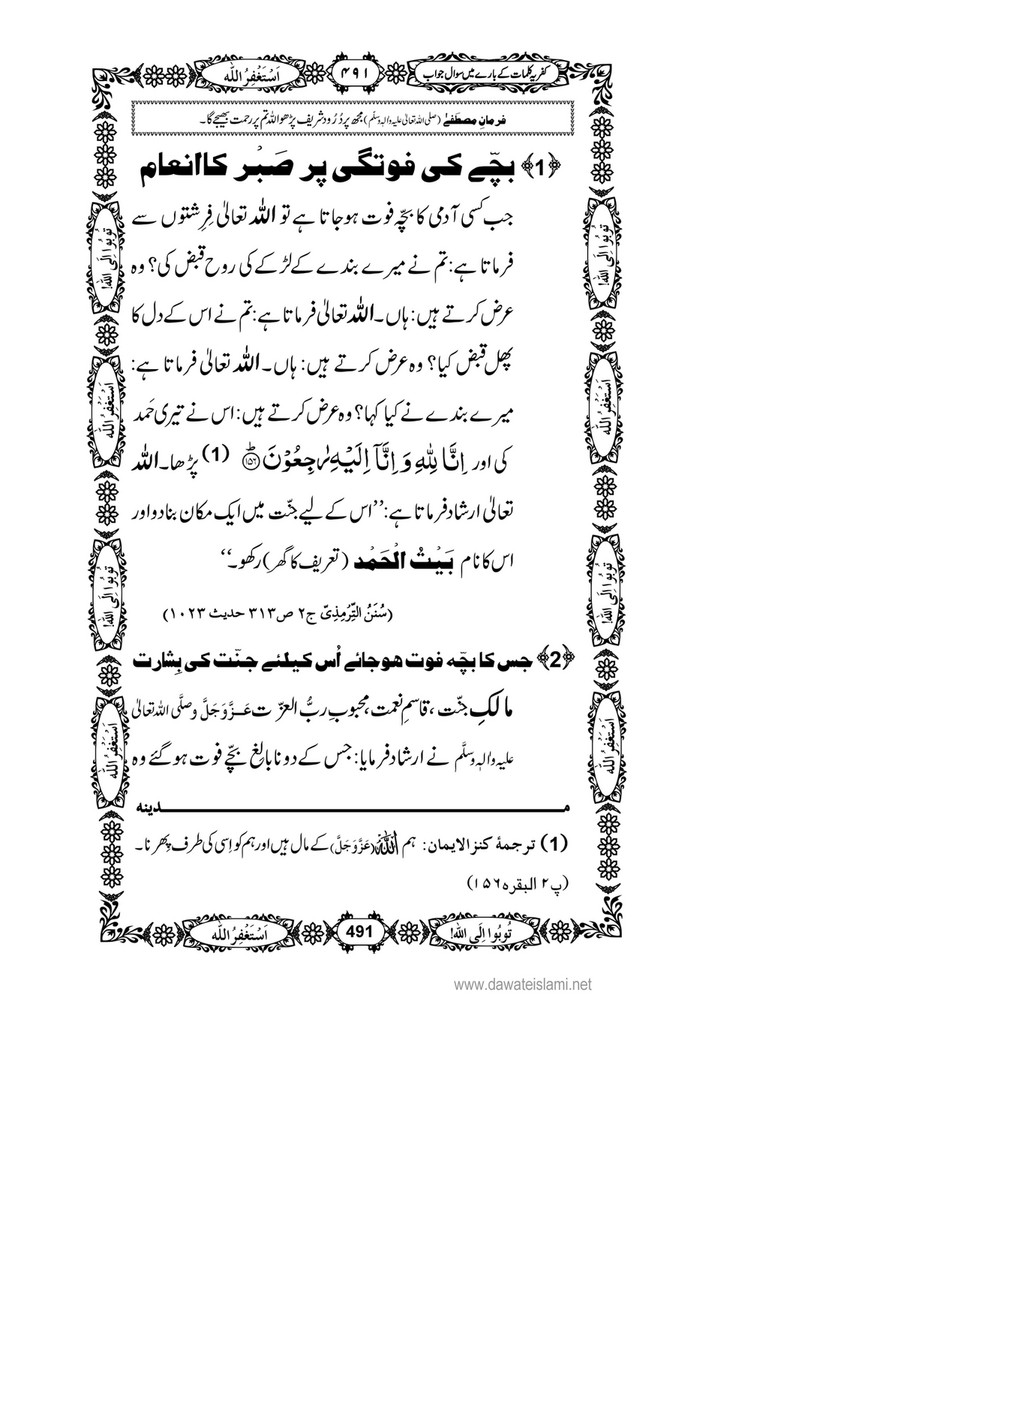 کفریہ کلمات کے بارے میں سوال جواب ۴۹۱ اَسْتَغْفِرُ اللہ
فرمانِ مصطفٰے (صلی اللہ تعالیٰ علیہ واٰلہٖ وسلّم) مجھ پر دُرُود شریف پڑھو اللہ تم پر رحمت بھیجے گا۔
﴿1﴾ بچّے کی فوتگی پر صَبْر کا انعام
جب کسی آدمی کا بچّہ فوت ہو جاتا ہے تو اللہ تعالیٰ فِرِشتوں سے
فرماتا ہے: تم نے میرے بندے کے لڑکے کی روح قبض کی؟ وہ
عرض کرتے ہیں: ہاں۔ اللہ تعالیٰ فرماتا ہے: تم نے اس کے دل کا
پھل قبض کیا؟ وہ عرض کرتے ہیں: ہاں۔ اللہ تعالیٰ فرماتا ہے:
میرے بندے نے کیا کہا؟ وہ عرض کرتے ہیں: اس نے تیری حَمد
کی اور اِنَّا لِلّٰهِ وَ اِنَّاۤ اِلَیْهِ رٰجِعُوْنَ ﴿۱۵۶﴾ؕ (1) پڑھا۔ اللہ
تعالیٰ ارشاد فرماتا ہے: ’’اس کے لیے جنّت میں ایک مکان بنا دو اور
اس کا نام بَیْتُ الْحَمْد (تعریف کا گھر) رکھو۔‘‘
(سُنَنُ التِّرْمِذِیّ ج۲ ص۳۱۳ حدیث ۱۰۲۳)
﴿2﴾ جس کا بچّہ فوت ہو جائے اُس کیلئے جنّت کی بِشارت
مالکِ جنّت، قاسمِ نعمت، محبوبِ ربُّ العزّت عَزَّوَجَلَّ وصلَّی اللہ تعالیٰ
علیہ واٰلہٖ وسلَّم نے ارشاد فرمایا: جس کے دو نابالِغ بچّے فوت ہو گئے وہ
مــــــــدینہ
(1) ترجمۂ کنزالایمان: ہم اللہ (عَزَّوَجَلَّ) کے مال ہیں اور ہم کو اِسی کی طرف پھرنا۔
(پ۲ البقرہ ۱۵۶)
تُوبُوا اِلَی اللہ! 491 اَسْتَغْفِرُ اللہ
تُوبُوا اِلَی اللہ!
اَسْتَغْفِرُ اللہ
تُوبُوا اِلَی اللہ!
اَسْتَغْفِرُ اللہ
تُوبُوا اِلَی اللہ!
اَسْتَغْفِرُ اللہ
تُوبُوا اِلَی اللہ!
اَسْتَغْفِرُ اللہ
www.dawateislami.net